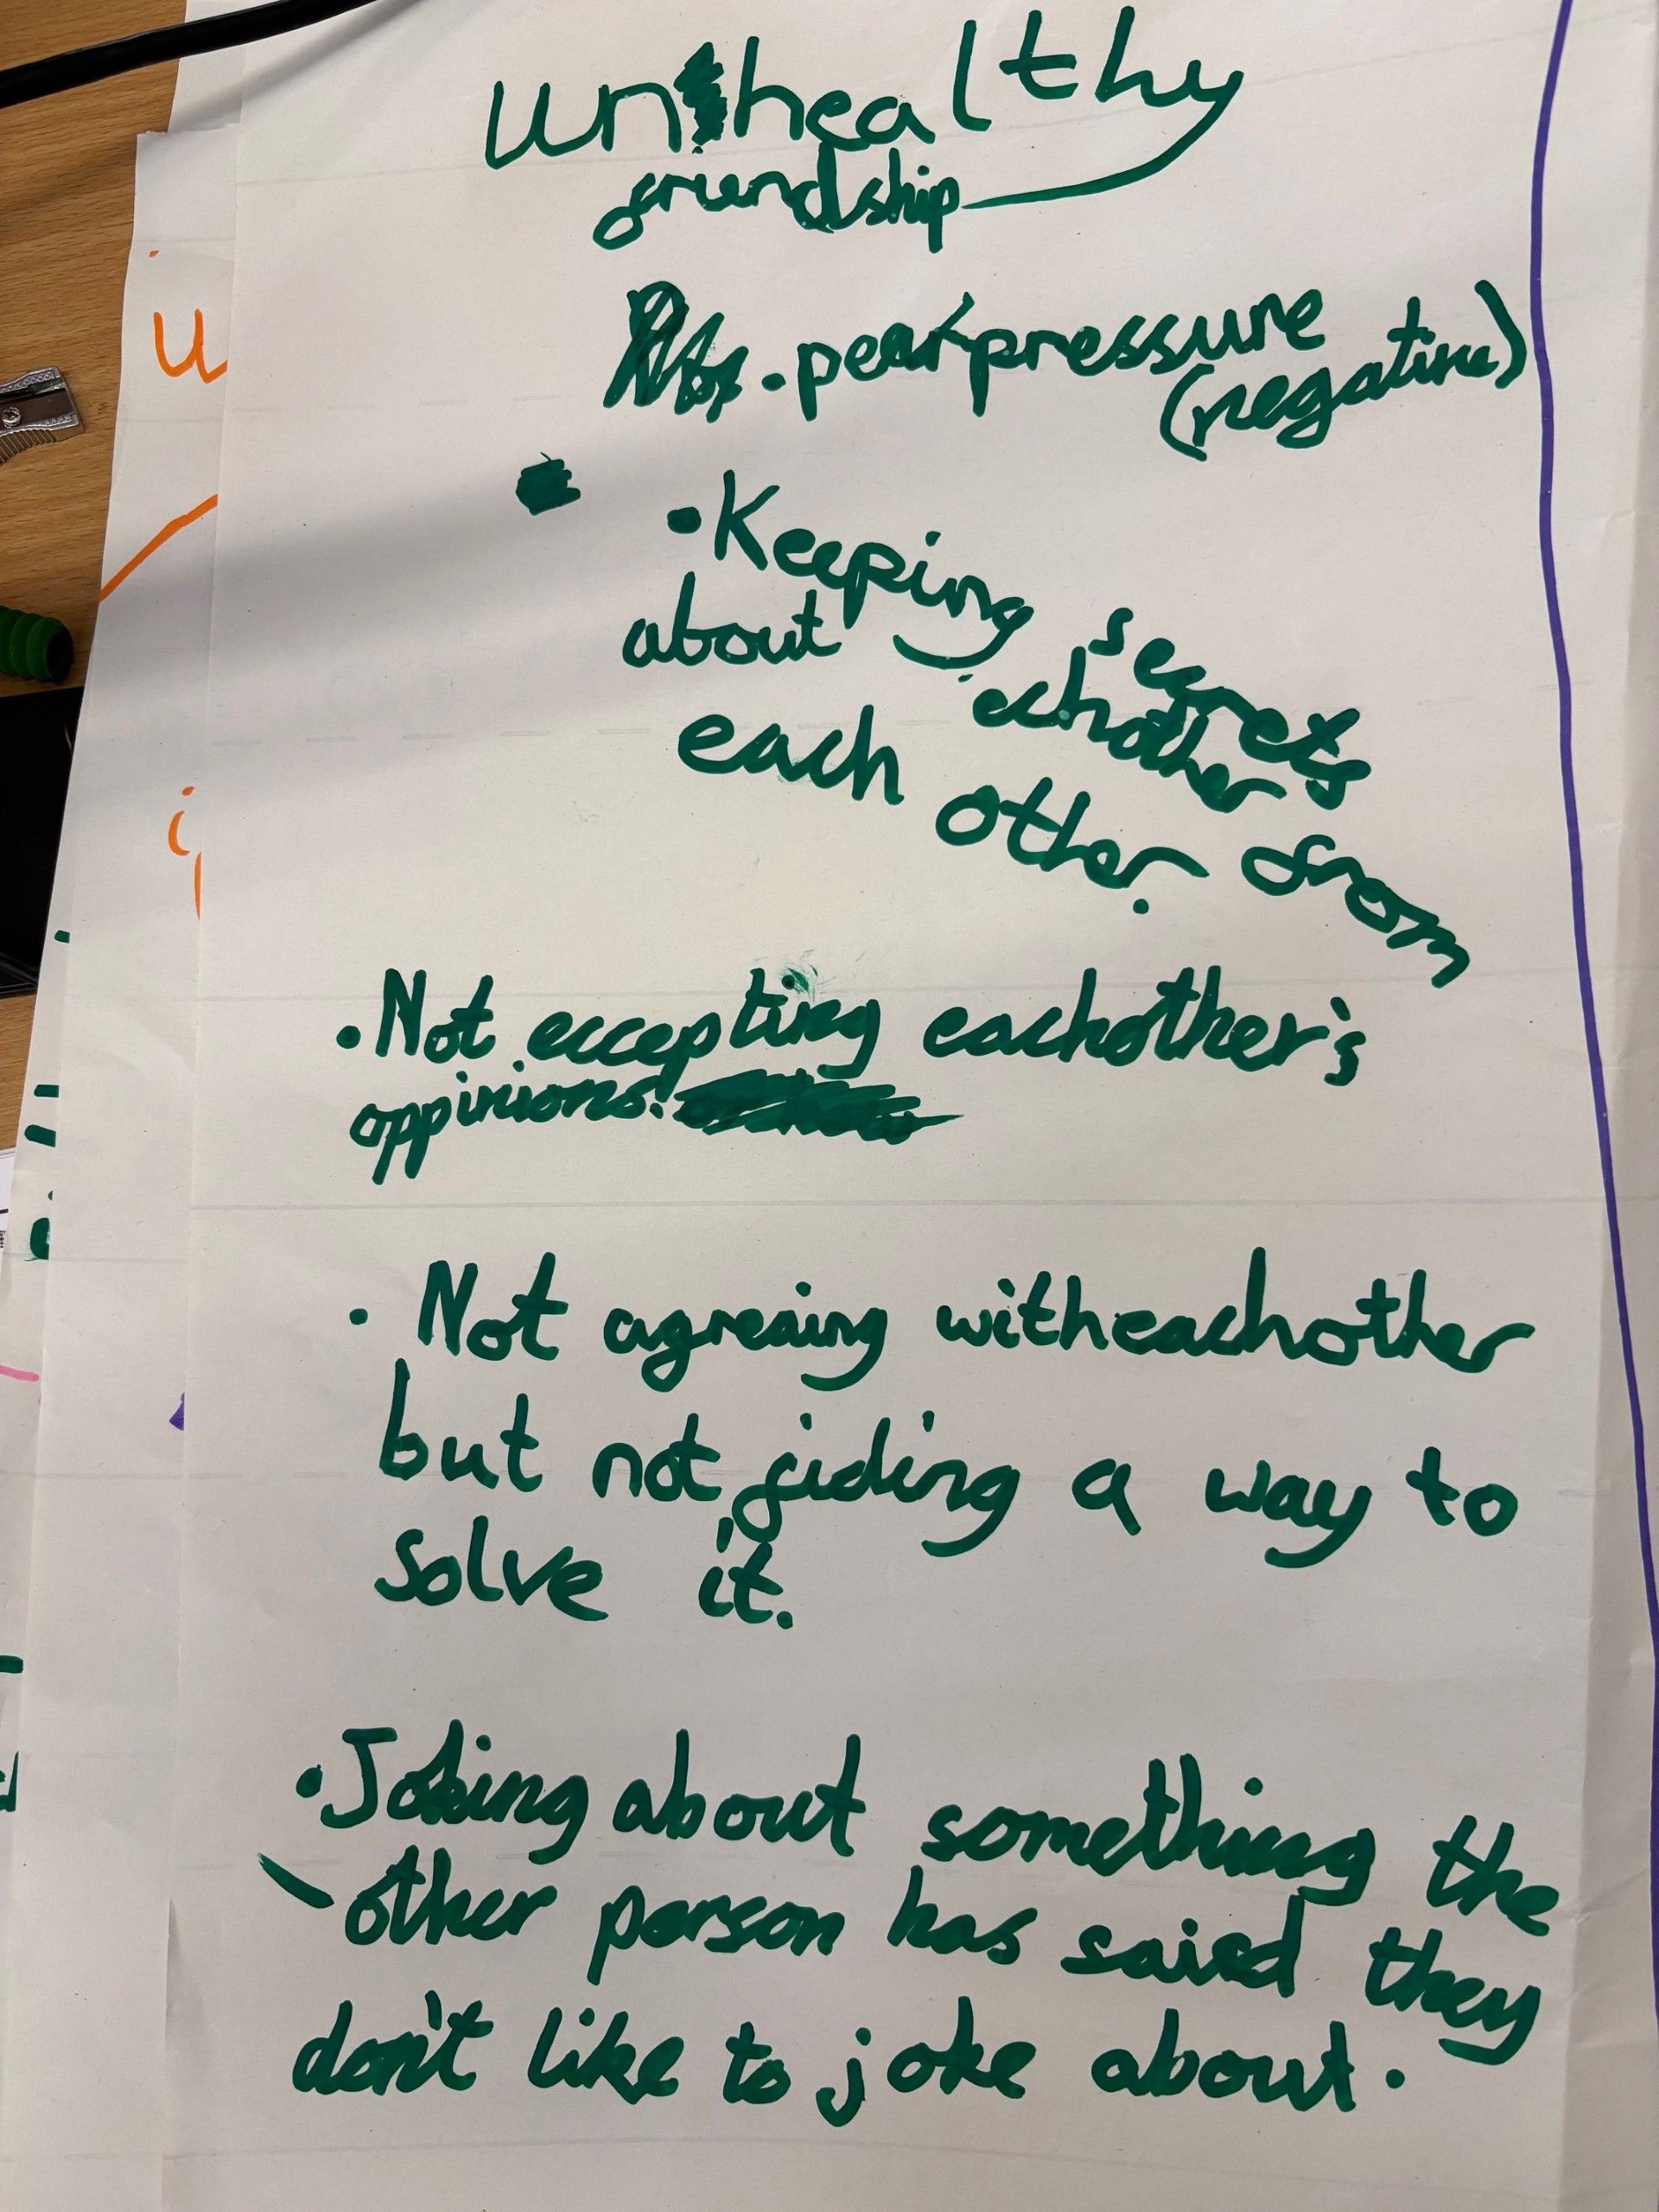 unhealthy
friendship
. pear pressure
(negative)
• Keeping secrets
about echother
each other. from
. Not eccepting eachother's
oppinions!
. Not agreaing witheachother
but not fiding a way to
solve it.
. Joking about something the
other person has saied they
don't like to joke about.
u
i